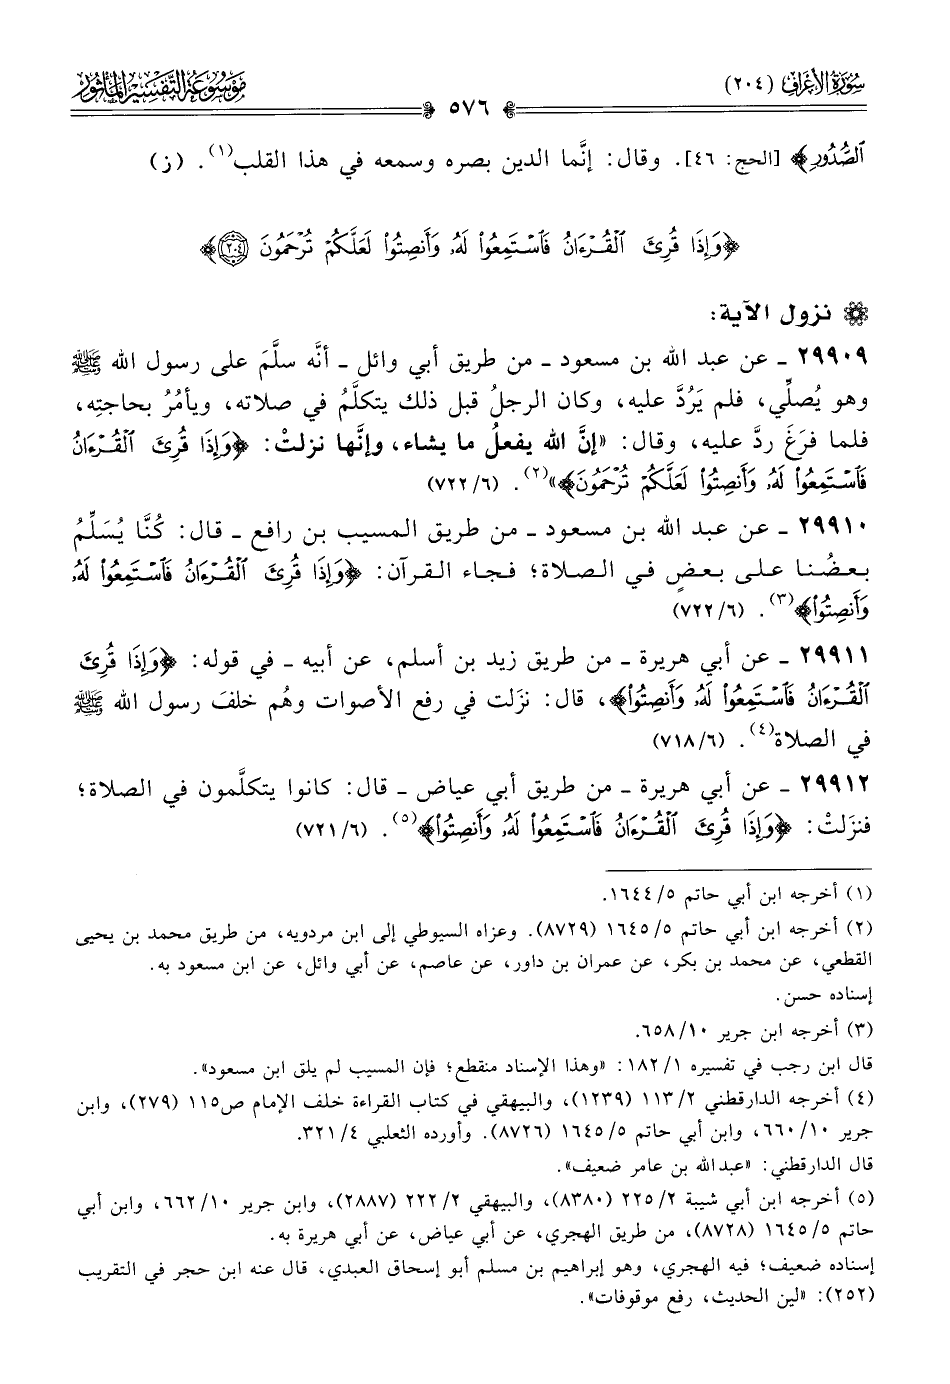 سُورَةُ الأَعْرَافِ (٢٠٤)
٥٧٦
مَوْسُوعَةُ التَّفْسِيرِ المَأْثُورِ
ٱلصُّدُورِ﴾ [الحج: ٤٦]. وقال: إنَّما الدين بصره وسمعه في هذا القلب(١). (ز)
﴿وَإِذَا قُرِئَ ٱلْقُرْءَانُ فَٱسْتَمِعُوا۟ لَهُۥ وَأَنصِتُوا۟ لَعَلَّكُمْ تُرْحَمُونَ ۝٢٠٤﴾
نزول الآية:
٢٩٩٠٩ ـ عن عبد الله بن مسعود ـ من طريق أبي وائل ـ أنَّه سلَّمَ على رسول الله ﷺ
وهو يُصلِّي، فلم يَرُدَّ عليه، وكان الرجلُ قبل ذلك يتكلَّمُ في صلاته، ويأمُرُ بحاجتِه،
فلما فرَغَ ردَّ عليه، وقال: «إنَّ الله يفعلُ ما يشاء، وإنَّها نزلتْ: ﴿وَإِذَا قُرِئَ ٱلْقُرْءَانُ
فَٱسْتَمِعُوا۟ لَهُۥ وَأَنصِتُوا۟ لَعَلَّكُمْ تُرْحَمُونَ﴾»(٢). (٧٢٢/٦)
٢٩٩١٠ ـ عن عبد الله بن مسعود ـ من طريق المسيب بن رافع ـ قال: كُنَّا يُسَلِّمُ
بعضُنا على بعضٍ في الصلاة؛ فجاء القرآن: ﴿وَإِذَا قُرِئَ ٱلْقُرْءَانُ فَٱسْتَمِعُوا۟ لَهُۥ
وَأَنصِتُوا۟﴾(٣). (٧٢٢/٦)
٢٩٩١١ ـ عن أبي هريرة ـ من طريق زيد بن أسلم، عن أبيه ـ في قوله: ﴿وَإِذَا قُرِئَ
ٱلْقُرْءَانُ فَٱسْتَمِعُوا۟ لَهُۥ وَأَنصِتُوا۟﴾، قال: نزَلت في رفع الأصوات وهُم خلفَ رسول الله ﷺ
في الصلاة(٤). (٧١٨/٦)
٢٩٩١٢ ـ عن أبي هريرة ـ من طريق أبي عياض ـ قال: كانوا يتكلَّمون في الصلاة؛
فنزَلتْ: ﴿وَإِذَا قُرِئَ ٱلْقُرْءَانُ فَٱسْتَمِعُوا۟ لَهُۥ وَأَنصِتُوا۟﴾(٥). (٧٢١/٦)
(١) أخرجه ابن أبي حاتم ١٦٤٤/٥.
(٢) أخرجه ابن أبي حاتم ١٦٤٥/٥ (٨٧٢٩). وعزاه السيوطي إلى ابن مردويه، من طريق محمد بن يحيى
القطعي، عن محمد بن بكر، عن عمران بن داور، عن عاصم، عن أبي وائل، عن ابن مسعود به.
إسناده حسن.
(٣) أخرجه ابن جرير ٦٥٨/١٠.
قال ابن رجب في تفسيره ١٨٢/١: «وهذا الإسناد منقطع؛ فإن المسيب لم يلق ابن مسعود».
(٤) أخرجه الدارقطني ١١٣/٢ (١٢٣٩)، والبيهقي في كتاب القراءة خلف الإمام ص١١٥ (٢٧٩)، وابن
جرير ٦٦٠/١٠، وابن أبي حاتم ١٦٤٥/٥ (٨٧٢٦). وأورده الثعلبي ٣٢١/٤.
قال الدارقطني: «عبد الله بن عامر ضعيف».
(٥) أخرجه ابن أبي شيبة ٢٢٥/٢ (٨٣٨٠)، والبيهقي ٢٢٢/٢ (٢٨٨٧)، وابن جرير ٦٦٢/١٠، وابن أبي
حاتم ١٦٤٥/٥ (٨٧٢٨)، من طريق الهجري، عن أبي عياض، عن أبي هريرة به.
إسناده ضعيف؛ فيه الهجري، وهو إبراهيم بن مسلم أبو إسحاق العبدي، قال عنه ابن حجر في التقريب
(٢٥٢): «لين الحديث، رفع موقوفات».